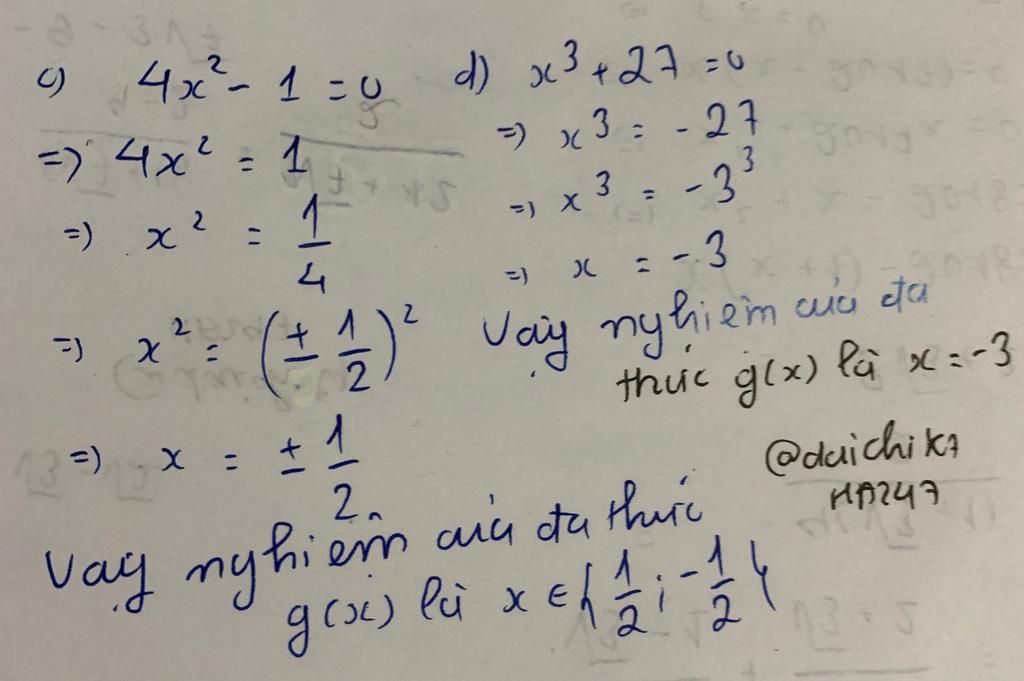 c) 4x² - 1 = 0
=> 4x² = 1
=> x² = 1/4
=> x² = (± 1/2)²
=> x = ± 1/2
Vậy nghiệm của đa thức
g(x) là x ∈ { 1/2 ; -1/2 }
d) x³ + 27 = 0
=> x³ = -27
=> x³ = -3³
=> x = -3
Vậy nghiệm của đa
thức g(x) là x = -3
@daichik7
HA247